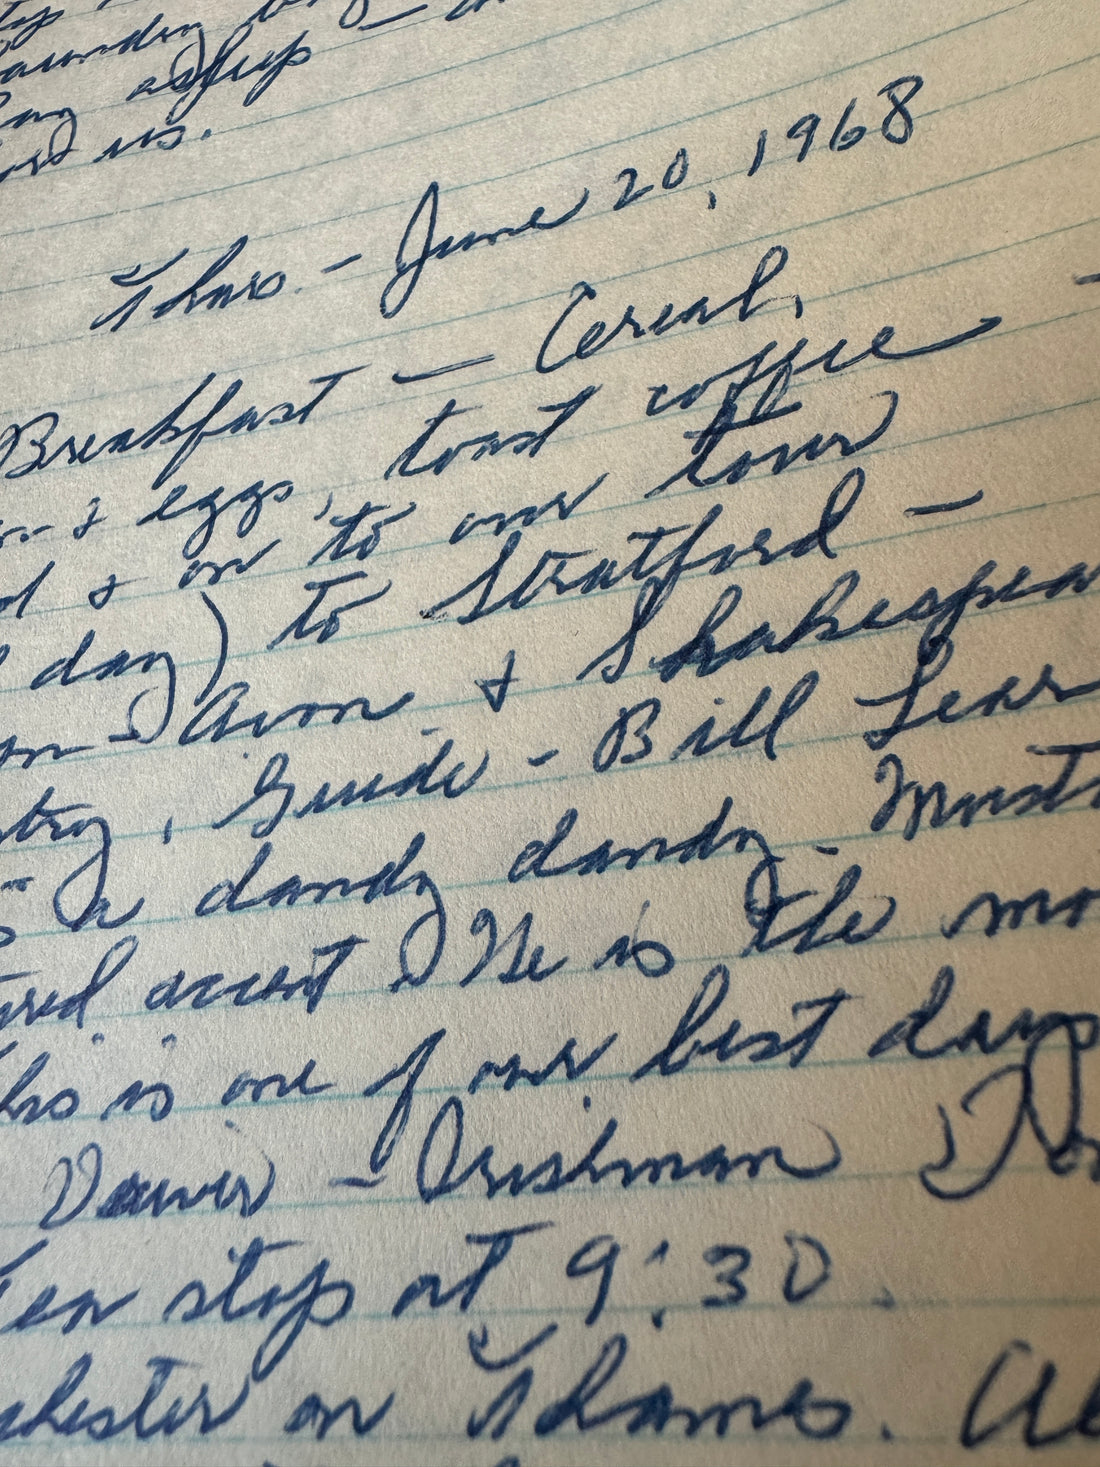 asleep -
us.
Thurs. - June 20, 1968
Breakfast - Cereal,
& eggs, toast coffee
& on to our tour
day) to Stratford -
on - Avon & Shakespea
try, Guide - Bill Lear
a dandy dandy - Moust
accent. He is the mo
is one of our best days
Driver - Irishman
Tea stop at 9:30.
chester on Thames.